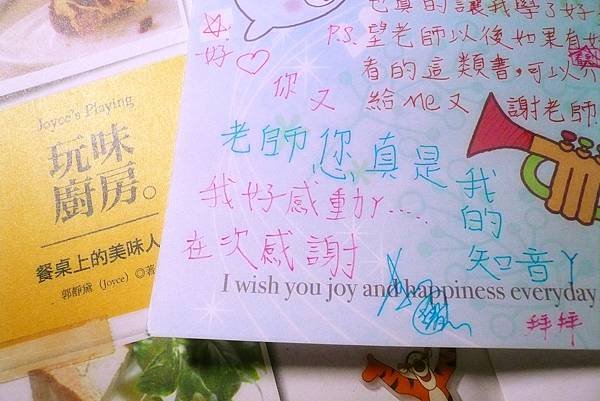 Joyce's Playing
玩味
廚房。
餐桌上的美味人
郭靜黛 (Joyce) ◎著
也真的讓我學了好
P.S. 望老師以後如果有
好♡
者的這類書,可以
你又
給me又
謝老師
老師您真是
我的知音ㄚ
我好感動ㄚ.....
在次感謝
I wish you joy and happiness everyday
拜拜